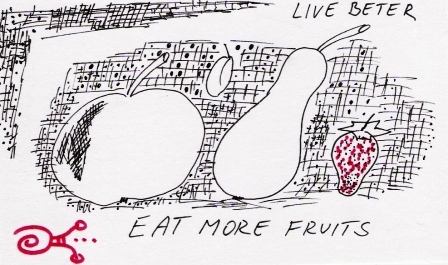 LIVE BETER
EAT MORE FRUITS